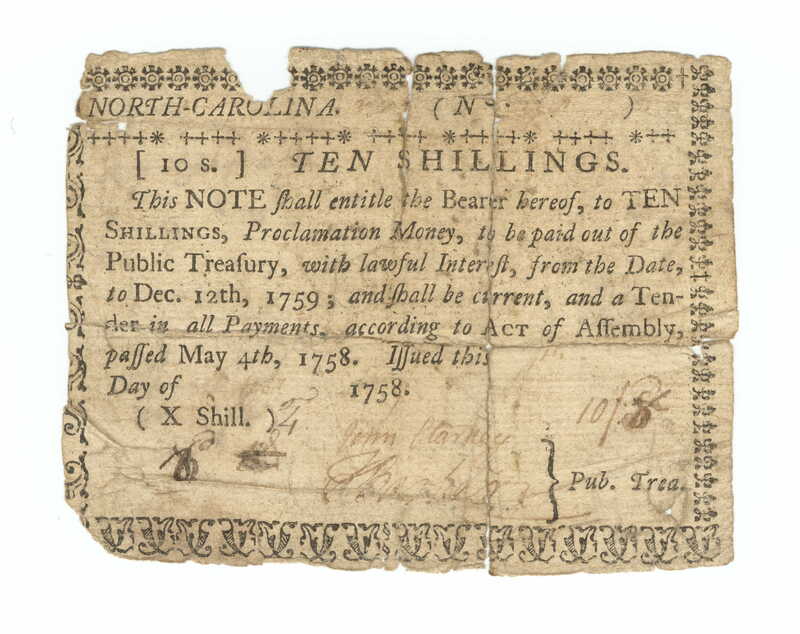 NORTH-CAROLINA. (N )
[ 10 s. ] TEN SHILLINGS.
This NOTE ſhall entitle the Bearer hereof, to TEN
SHILLINGS, Proclamation Money, to be paid out of the
Public Treaſury, with lawful Intereſt, from the Date,
to Dec. 12th, 1759; and ſhall be current, and a Ten-
der in all Payments, according to ACT of Aſſembly,
paſſed May 4th, 1758. Iſſued this
Day of 1758.
( X Shill. )
10/
John
Pub. Trea.